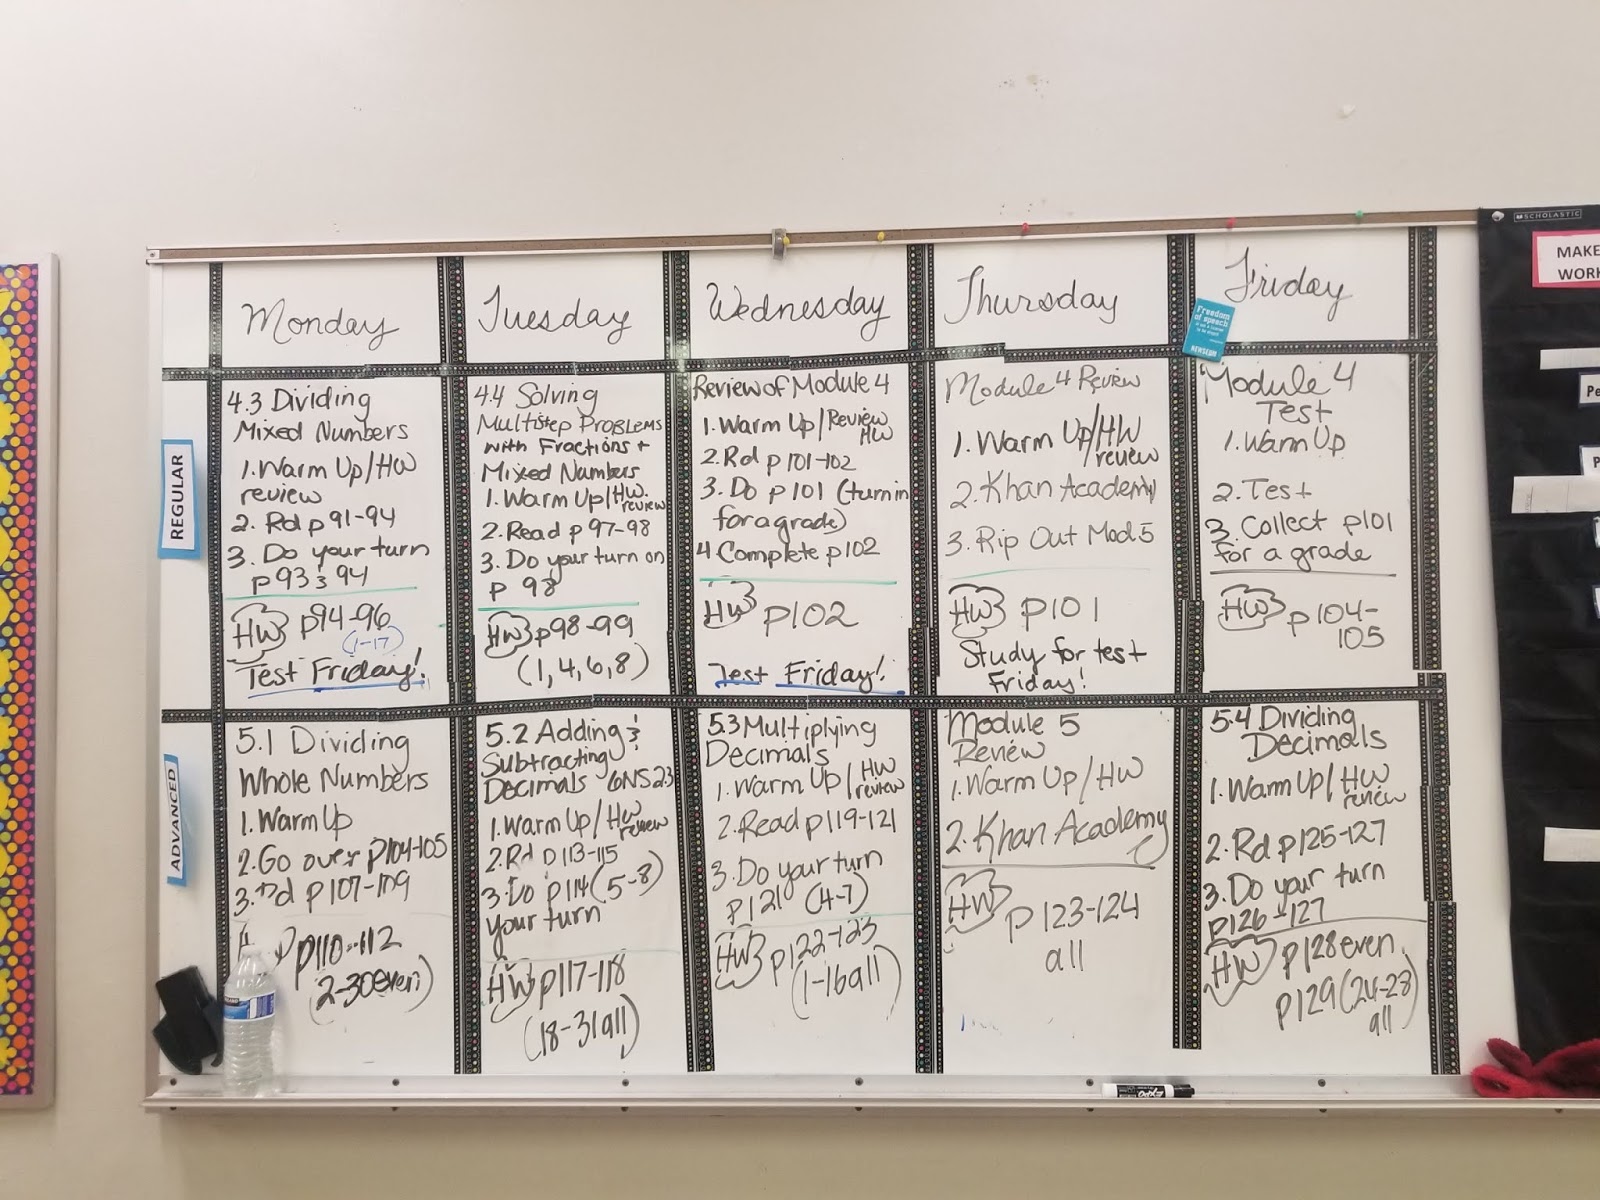 Monday
Tuesday
Wednesday
Thursday
Friday
REGULAR
4.3 Dividing
Mixed Numbers
1. Warm Up/HW
review
2. Rd p91-94
3. Do your turn
p 93 & 94
HW p94-96
(1-17)
Test Friday!
4.4 Solving
Multistep Problems
with Fractions +
Mixed Numbers
1. Warm Up/HW.
review
2. Read p 97-98
3. Do your turn on
p 98
HW p98-99
(1,4,6,8)
Review of Module 4
1. Warm Up/Review
HW
2. Rd p101-102
3. Do p101 (turn in
for a grade)
4 Complete p102
HW p102
Test Friday!
Module 4 Review
1. Warm Up/HW
review
2. Khan Academy
3. Rip Out Mod 5
HW p101
Study for test
Friday!
Module 4
Test
1. Warm Up
2. Test
3. Collect p101
for a grade
HW p104-
105
ADVANCED
5.1 Dividing
Whole Numbers
1. Warm Up
2. Go over p104-105
3. Rd p107-109
p110-112
(2-30 even)
5.2 Adding &
Subtracting
Decimals 6NS2.3
1. Warm Up/HW
review
2. Rd p113-115
3. Do p114 (5-8)
your turn
HW p117-118
(18-31 all)
5.3 Multiplying
Decimals
1. Warm Up/HW
review
2. Read p119-121
3. Do your turn
p121 (4-7)
HW p122-123
(1-16 all)
Module 5
Review
1. Warm Up/HW
2. Khan Academy
HW p123-124
all
5.4 Dividing
Decimals
1. Warm Up/HW
review
2. Rd p125-127
3. Do your turn
p126-127
HW p128 even,
p129 (24-28)
all
Freedom
of speech
NEWSEUM
SCHOLASTIC
MAKE
WORK
Pe
P
EXPO